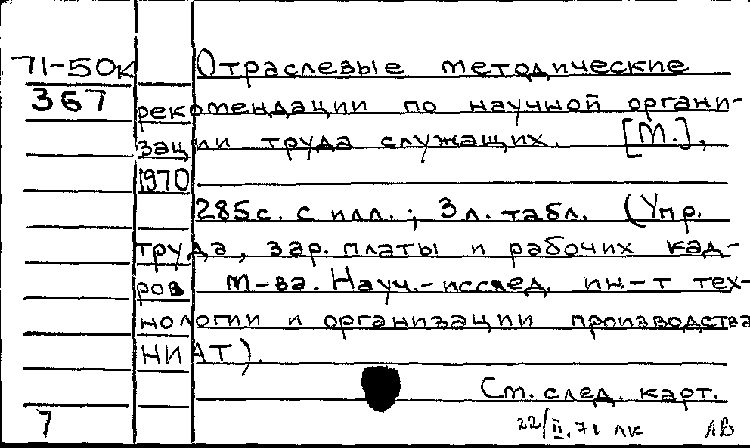 71-50к Отраслевые методические
367 рекомендации по научной органи-
зации труда служащих. [М.],
1970
285с. с илл.; 3л. табл. (Упр.
труда, зар. платы и рабочих кад-
ров м-ва. Науч.-исслед. ин-т тех-
нологии и организации производства
НИАТ).
См. след. карт.
7 22/II.71 лк ЛВ